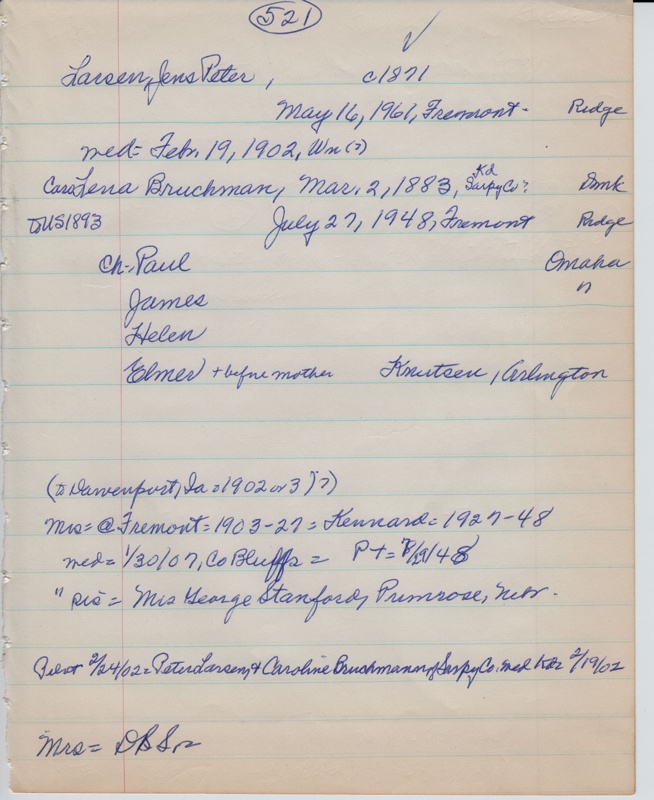 521
Larsen, Jens Peter, c1871
May 16, 1961, Fremont - Ridge
med = Febr. 19, 1902, Wn (?)
Kd
Caro Lena Bruchman, Mar. 2, 1883, Sarpy Co? Dmk
to US 1893 July 27, 1948, Fremont Ridge
Ch- Paul Omaha
James "
Helen
Elmer + before mother Knutsen, Arlington
(to Davenport, Ia = 1902 or 3) ?)
Mrs = @ Fremont = 1903-27 = Kennard = 1927-48
med = 1/30/07, Co Bluffs = P t =
" sis = Mrs George Stanford, Primrose, Nebr.
Pilot 2/24/02 = Peter Larsen, & Caroline Bruchmann of Sarpy Co. med Kd 2/19/02
Mrs =